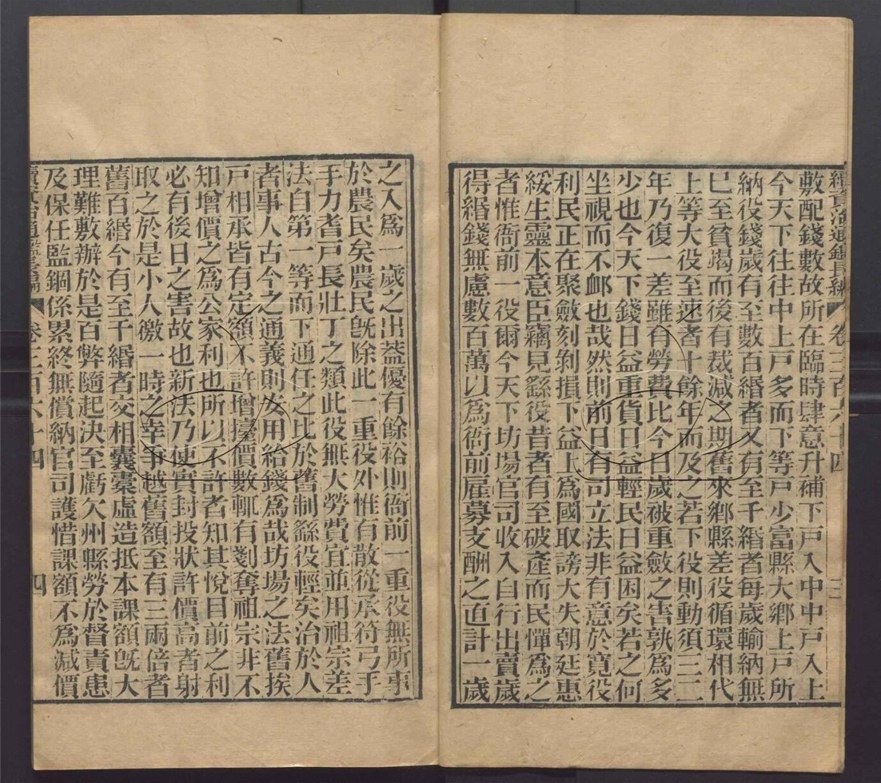 續資治通鑑長編 卷三百六十四 三
敷配錢數故所在臨時肆意升補下戸入中中戸入上
今天下往往中上戸多而下等戸少富縣大鄉上戸所
納役錢歲有至數百緡者又有至千緡者每歲輸納無
已至貧竭而後有裁減之期舊來鄉縣差役循環相代
上等大役至速者十餘年而及之若下役則動須三二
年乃復一差雖有勞費比今日歲被重斂之害孰爲多
少也今天下錢日益重貨日益輕民日益困矣若之何
坐視而不卹也哉然則前日有司立法非有意於寛役
利民正在聚斂刻剝損下益上爲國取謗大失朝廷惠
綏生靈本意臣竊見繇役昔者有至破產而民憚爲之
者惟衙前一役爾今天下坊場官司收入自行出賣歲
得緡錢無慮數百萬以爲衙前雇募支酬之直計一歲
之入爲一歲之出蓋優有餘裕則衙前一重役無所事
於農民矣農民旣除此一重役外惟有散從承符弓手
手力耆戸長壯丁之類此役無大勞費宜並用祖宗差
法自第一等而下通任之比於舊制繇役輕矣治於人
者事人古今之通義則安用給錢爲哉坊場之法舊挨
戸相承皆有定額不許增擡價數輒有剗奪祖宗非不
知增價之爲公家利也所以不許者知其悅目前之利
必有後日之害故也新法乃使實封投狀許價高者射
取之於是小人徼一時之幸爭越舊額至有三兩倍者
舊百緡今有至千緡者交相囊槖虛造抵本課額旣大
理難敷辦於是百弊隨起決至虧欠州縣勞於督責患
及保任監錮係累終無償納官司護惜課額不爲減價
續資治通鑑長編 卷三百六十四 四